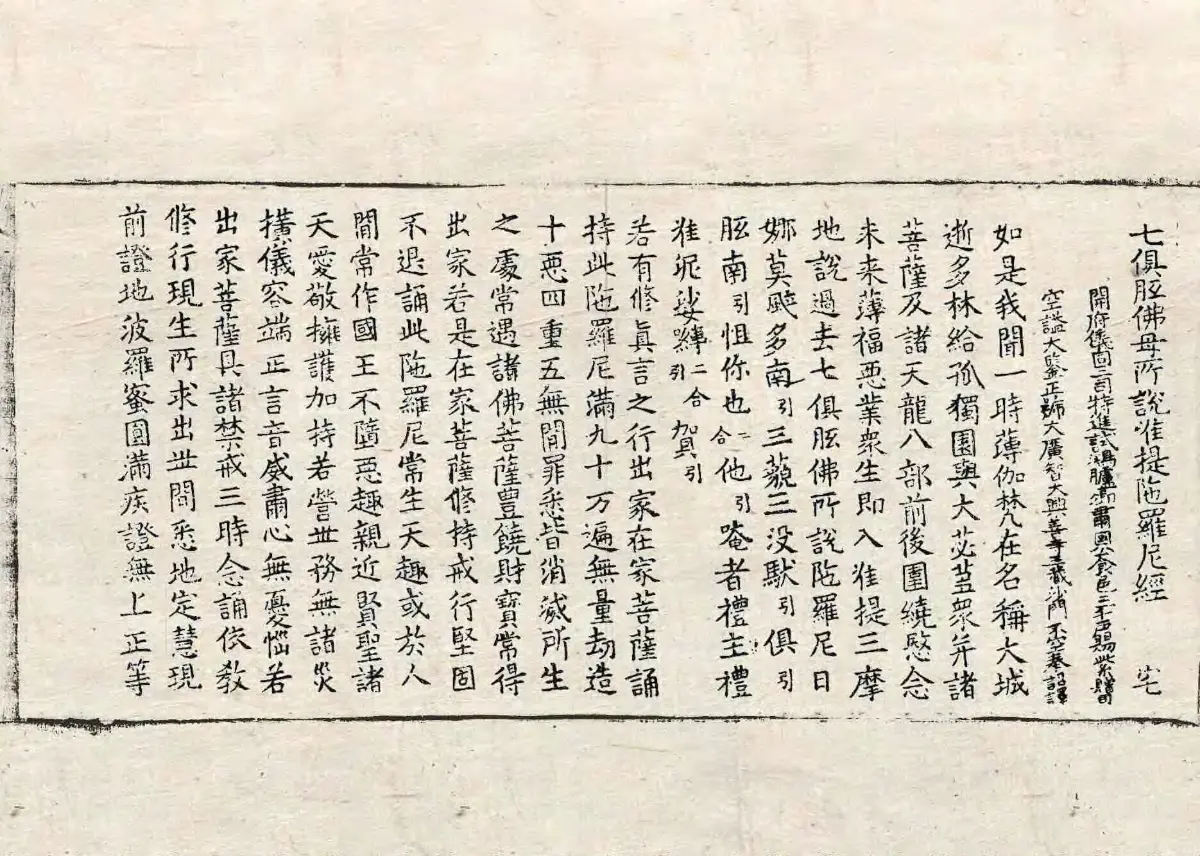 七俱胝佛母所說准提陁羅尼經 宅
開府儀同三司特進試鴻臚卿肅國公食邑三千戶賜紫贈司
空謚大鑒正號大廣智大興善寺三藏沙門不空奉詔譯
如是我聞一時薄伽梵在名稱大城
逝多林給孤獨園與大苾芻衆并諸
菩薩及諸天龍八部前後圍繞愍念
未来薄福惡業衆生即入准提三摩
地說過去七俱胝佛所說陁羅尼曰
娜莫颯多南引三藐三没馱引俱引
胝南引怛你也二合他引唵者禮主禮
准泥娑嚩二合引賀引
若有修真言之行出家在家菩薩誦
持此陁羅尼滿九十万遍無量劫造
十惡四重五無間罪悉皆消滅所生
之處常遇諸佛菩薩豊饒財寶常得
出家若是在家菩薩修持戒行堅固
不退誦此陁羅尼常生天趣或於人
間常作國王不墮惡趣親近賢聖諸
天愛敬擁護加持若營世務無諸災
撗儀容端正言音威肅心無憂惱若
出家菩薩具諸禁戒三時念誦依教
修行現生所求出世間悉地定慧現
前證地波羅蜜圓滿疾證無上正等